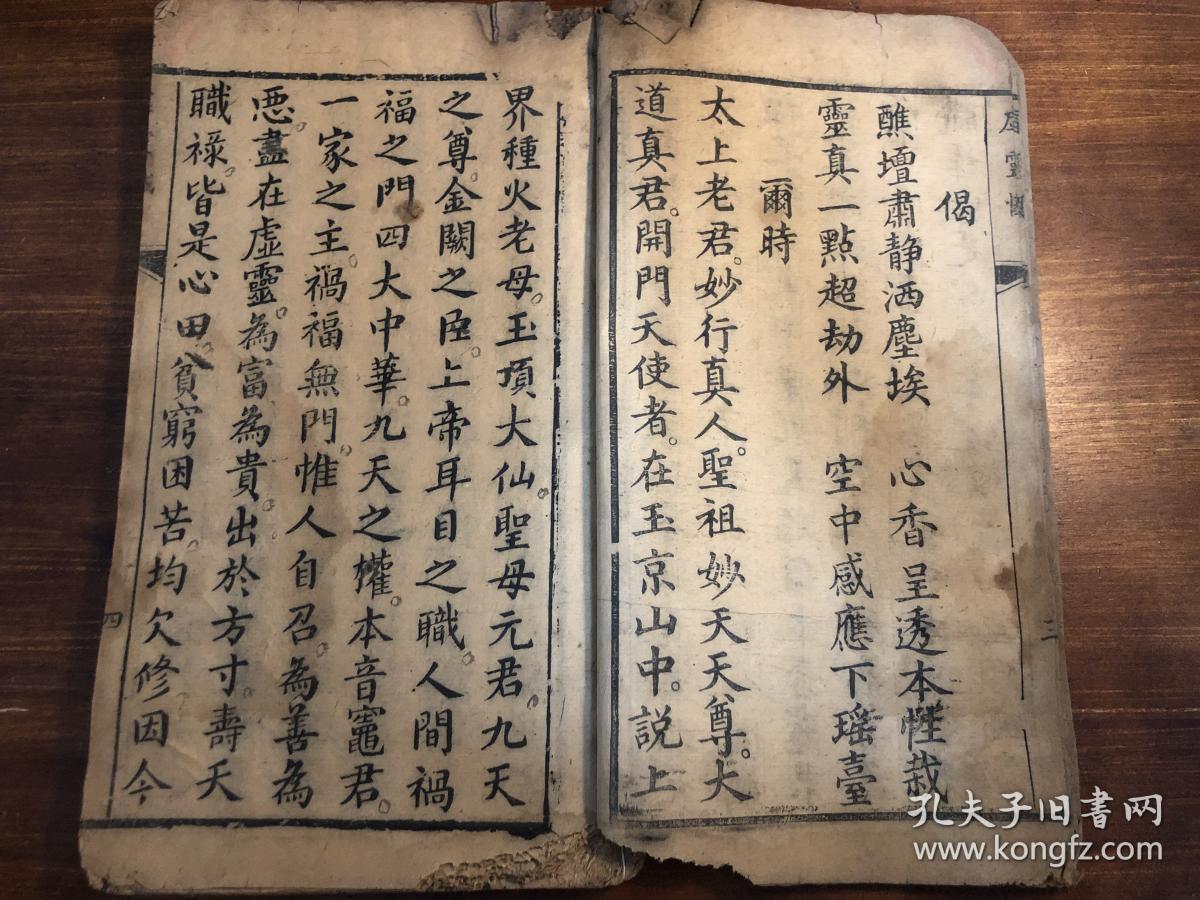 虛靈
三
偈
醮壇肅靜洒塵埃　心香呈透本性栽
靈真一點超劫外　空中感應下瑤臺
爾時
太上老君。妙行真人。聖祖妙天天尊。大
道真君。開門天使者。在玉京山中。説上
界種火老母。玉頂大仙。聖母元君。九天
之尊。金闕之臣。上帝耳目之職。人間禍
福之門四大中華。九天之權。本音竈君。
一家之主。禍福無門。惟人自召。為善為
惡。盡在虛靈。為富為貴。出於方寸。壽夭
職祿。皆是心田。貧窮困苦。均欠修。因今
四
孔夫子旧書网
www.kongfz.com